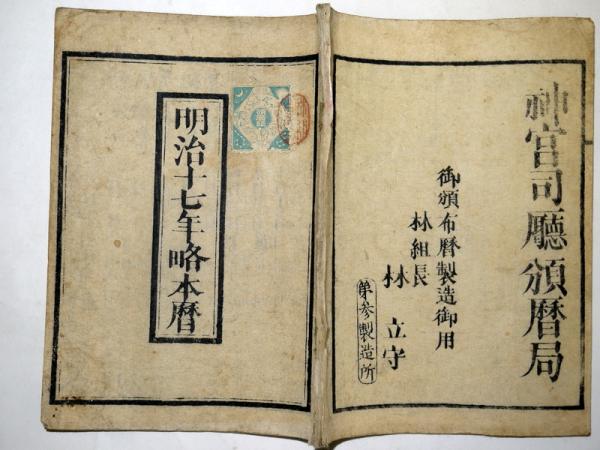 神宮司廳頒曆局
御頒布曆製造御用
林組長
林立守
第参製造所
明治十七年略本暦